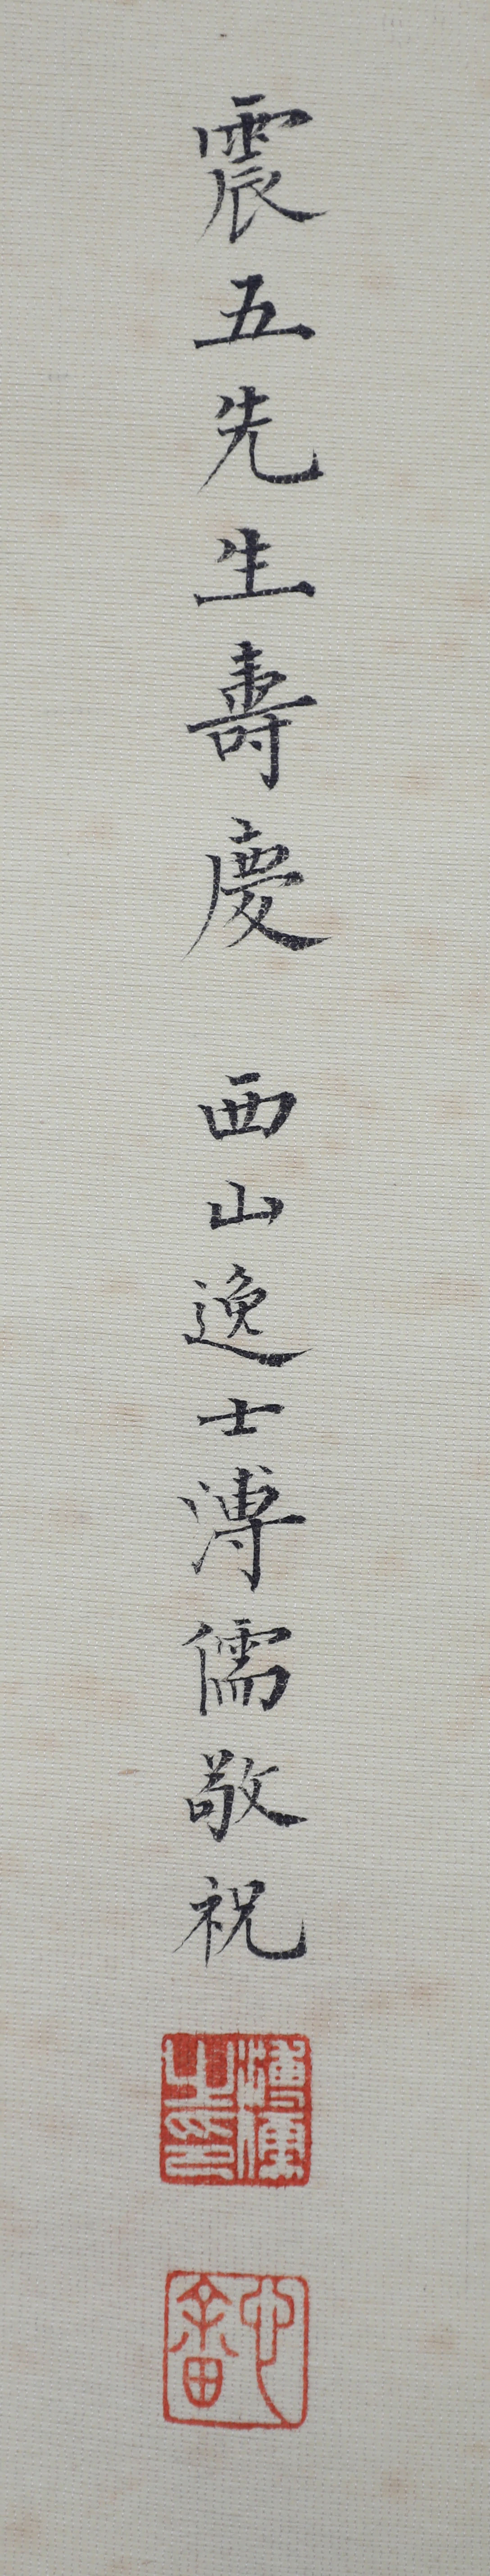 震五先生壽慶 西山逸士溥儒敬祝
溥儒之印
心畬